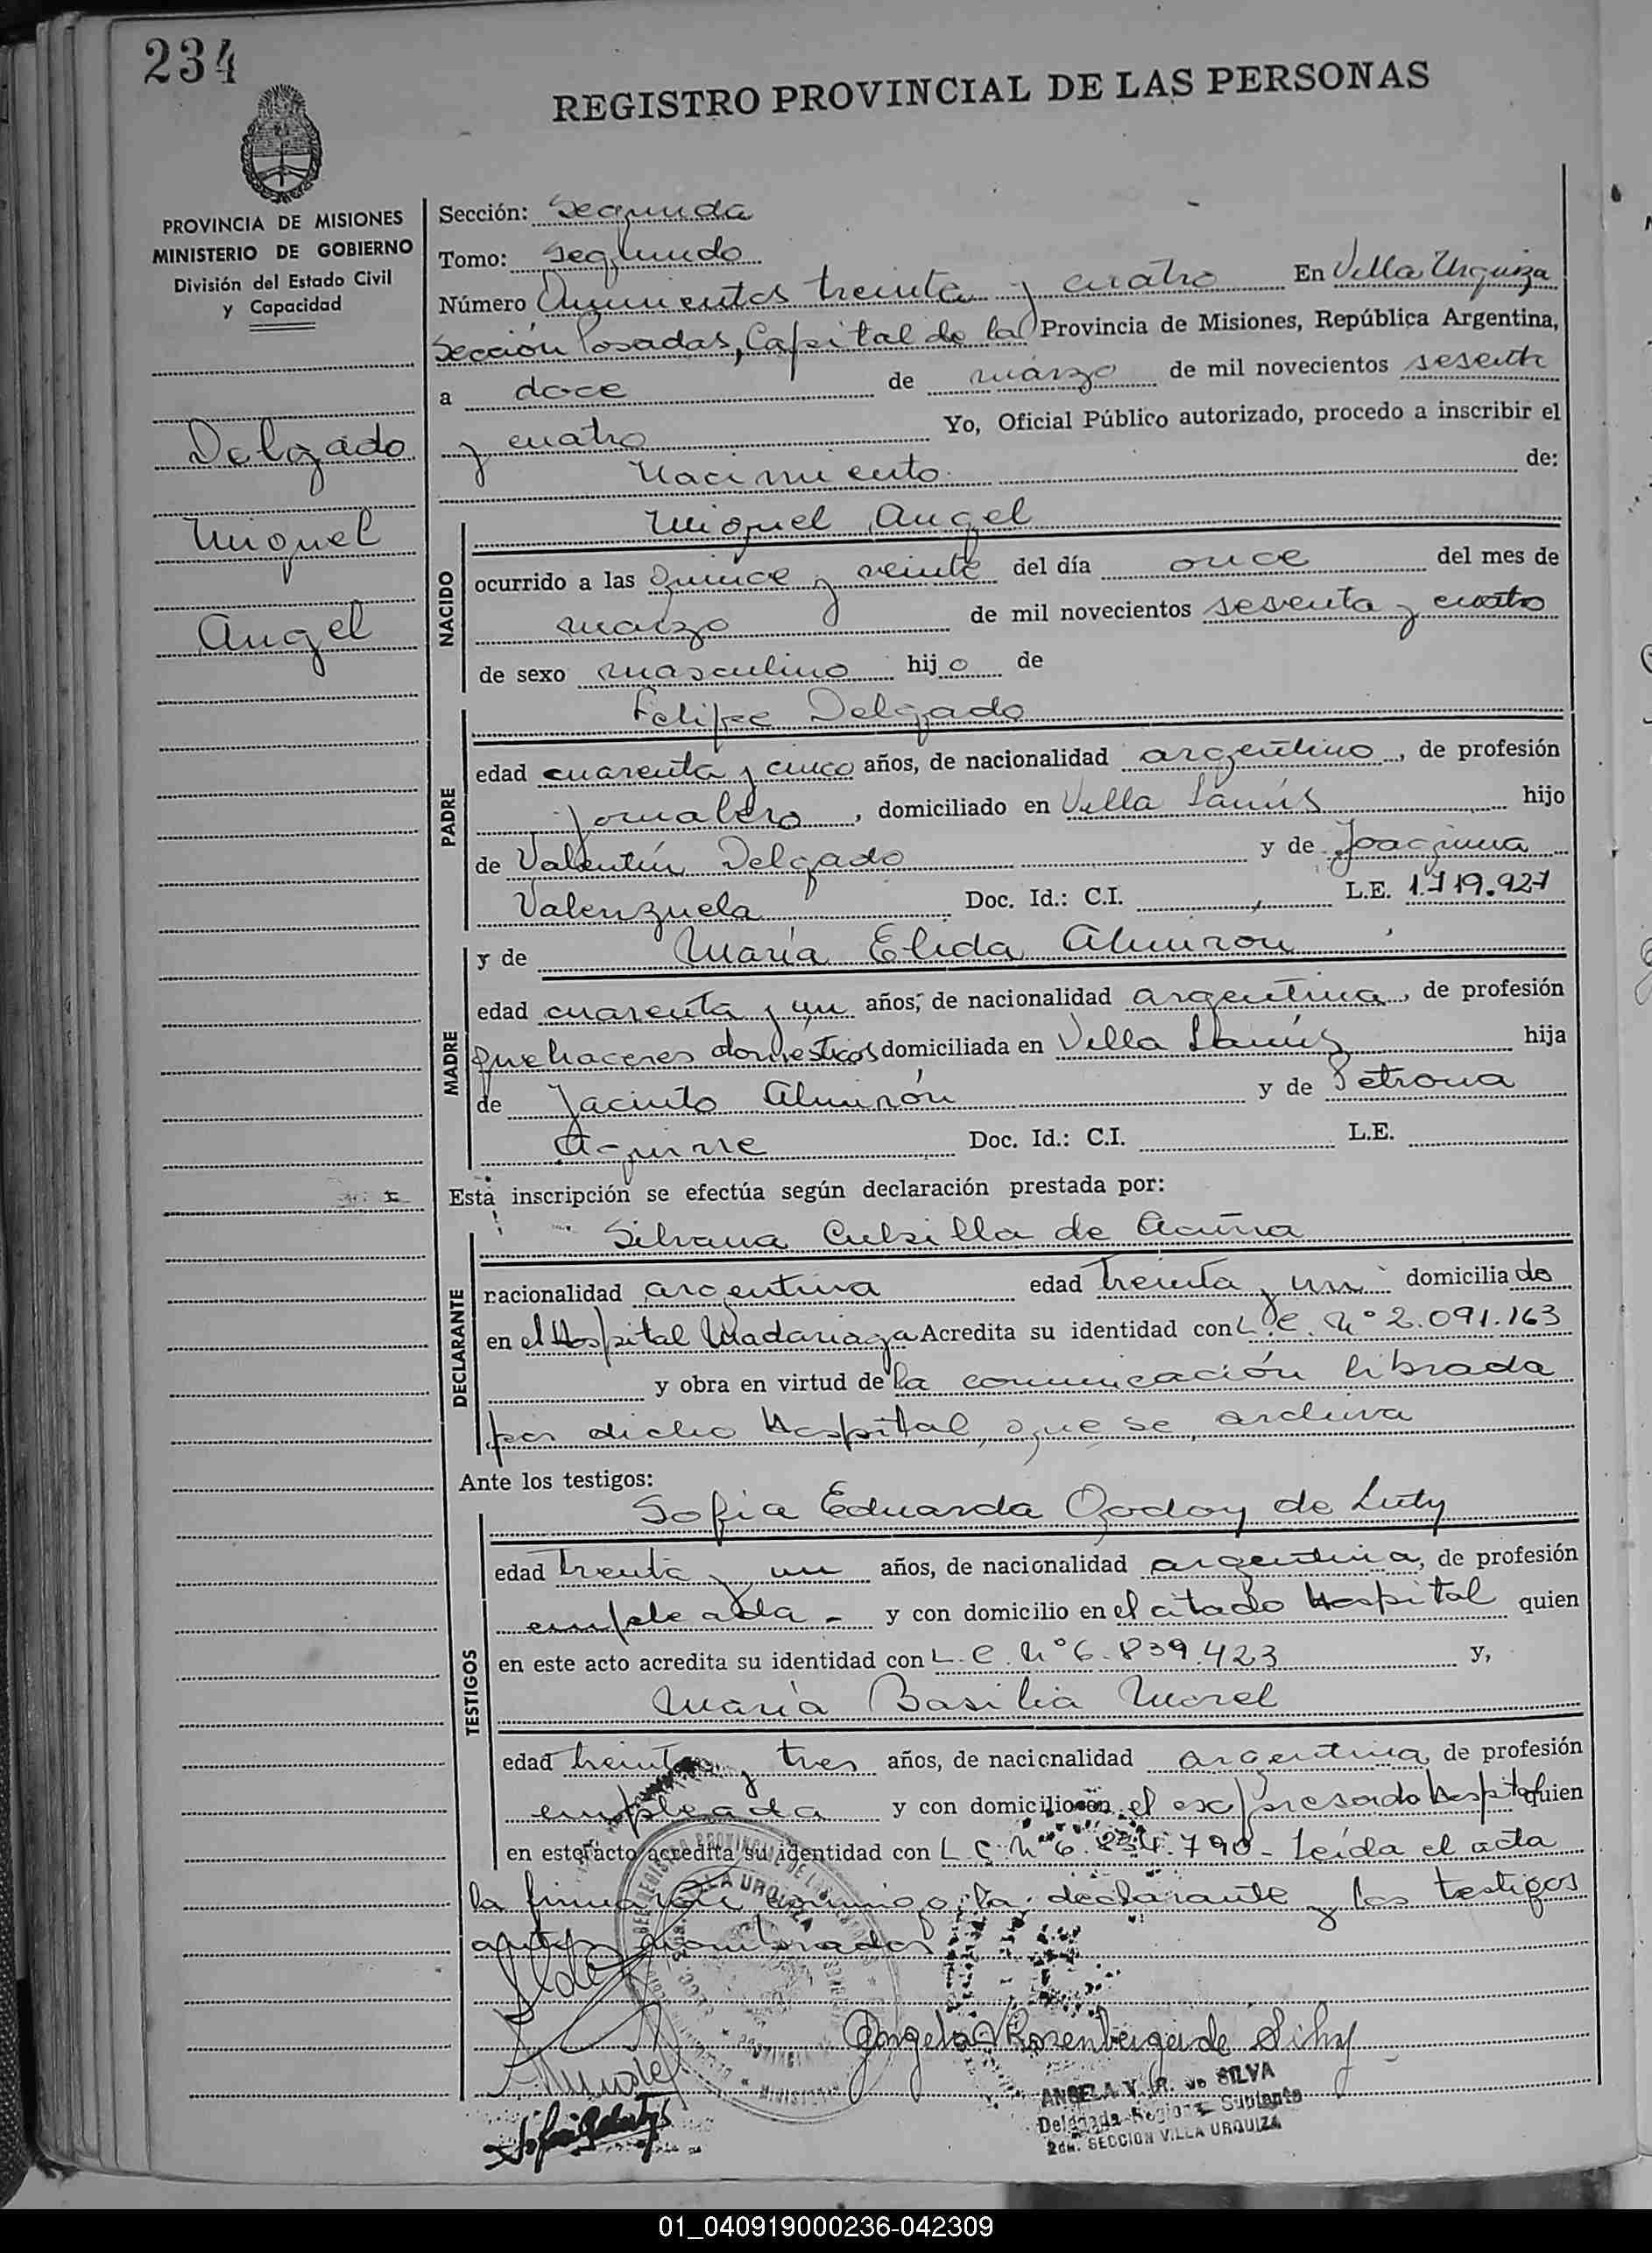 234
REGISTRO PROVINCIAL DE LAS PERSONAS
PROVINCIA DE MISIONES
MINISTERIO DE GOBIERNO
División del Estado Civil
y Capacidad
Delgado
Miguel
Angel
Sección: Segunda
Tomo: Segundo
Número Quinientos treinta y cuatro En Villa Urquiza
Sección Posadas, Capital de la Provincia de Misiones, República Argentina,
a doce de marzo de mil novecientos sesenta
y cuatro Yo, Oficial Público autorizado, procedo a inscribir el
Nacimiento de:
NACIDO
Miguel Angel
ocurrido a las Quince y veinte del día once del mes de
marzo de mil novecientos sesenta y cuatro
de sexo masculino hijo de
PADRE
Felipe Delgado
edad cuarenta y cinco años, de nacionalidad argentino, de profesión
jornalero, domiciliado en Villa Lanús hijo
de Valentín Delgado y de Joaquina
Valenzuela Doc. Id.: C.I. L.E. 1.719.927
MADRE
y de María Elida Almiron
edad cuarenta y un años, de nacionalidad argentina, de profesión
quehaceres domésticos domiciliada en Villa Lanús hija
de Jacinto Almirón y de Petrona
Aguirre Doc. Id.: C.I. L.E.
Esta inscripción se efectúa según declaración prestada por:
DECLARANTE
Silvana Cubilla de Acuña
nacionalidad argentina edad treinta y un domiciliado
en el Hospital Madariaga Acredita su identidad con L.C. Nº 2.091.163
y obra en virtud de la comunicación librada
por dicho Hospital, que se archiva
Ante los testigos:
TESTIGOS
Sofia Eduarda Godoy de Luty
edad treinta y un años, de nacionalidad argentina, de profesión
empleada - y con domicilio en el citado Hospital quien
en este acto acredita su identidad con L.C. Nº 6.839.423 y,
María Basilia Morel
edad treinta y tres años, de nacionalidad argentina, de profesión
empleada y con domicilio en el expresado Hospital quien
en este acto acredita su identidad con L.C. Nº 6.234.790 - Leída el acta
la firmaron conmigo, la declarante y los testigos
antes nombrados
VILLA URQUIZA
Angela V Rosenberger de Silva
ANGELA V. R. de SILVA
Delegada Regional Suplente
2da. SECCION VILLA URQUIZA
01_040919000236-042309